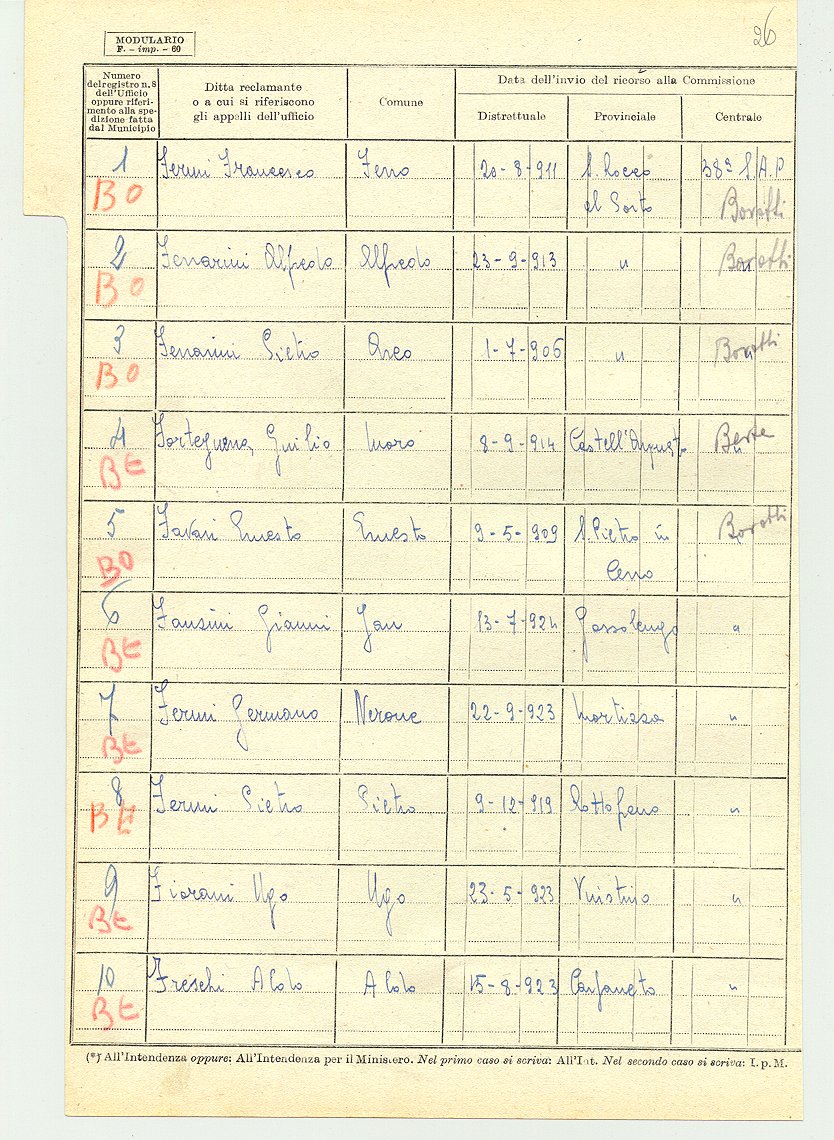 26
MODULARIO
F. - imp. - 60
Numero del registro n. 8 dell'Ufficio oppure riferimento alla spedizione fatta dal Municipio
Ditta reclamante
o a cui si riferiscono
gli appelli dell'ufficio
Comune
Data dell'invio del ricorso alla Commissione
Distrettuale Provinciale Centrale
1 Fermi Francesco Ferro 20-8-911 S. Rocco 38ª S.A.P
BO al Porto Boratti
2 Ferrarini Alfredo Alfredo 23-9-913 " Boratti
BO
3 Ferrarini Pietro 1-7-906 " Boratti
BO
4 Giulio Moro 8-9-914 "
BE
5 Favari Ernesto Ernesto 9-5-909 S. Pietro in Boratti
BO Cerro
6 Fansini Gianni Jan 13-7-924 Gossolengo "
BE
7 Fermi Germano Nerone 22-9-923 Mortizza "
BE
8 Fermi Pietro Pietro 9-12-919 "
BE
9 Fiorani Ugo Ugo 23-5-923 "
BE
10 Freschi Aldo Aldo 15-8-923 Carpaneto "
BE
(*) All'Intendenza oppure: All'Intendenza per il Ministero. Nel primo caso si scriva: All'Int. Nel secondo caso si scriva: I. p. M.